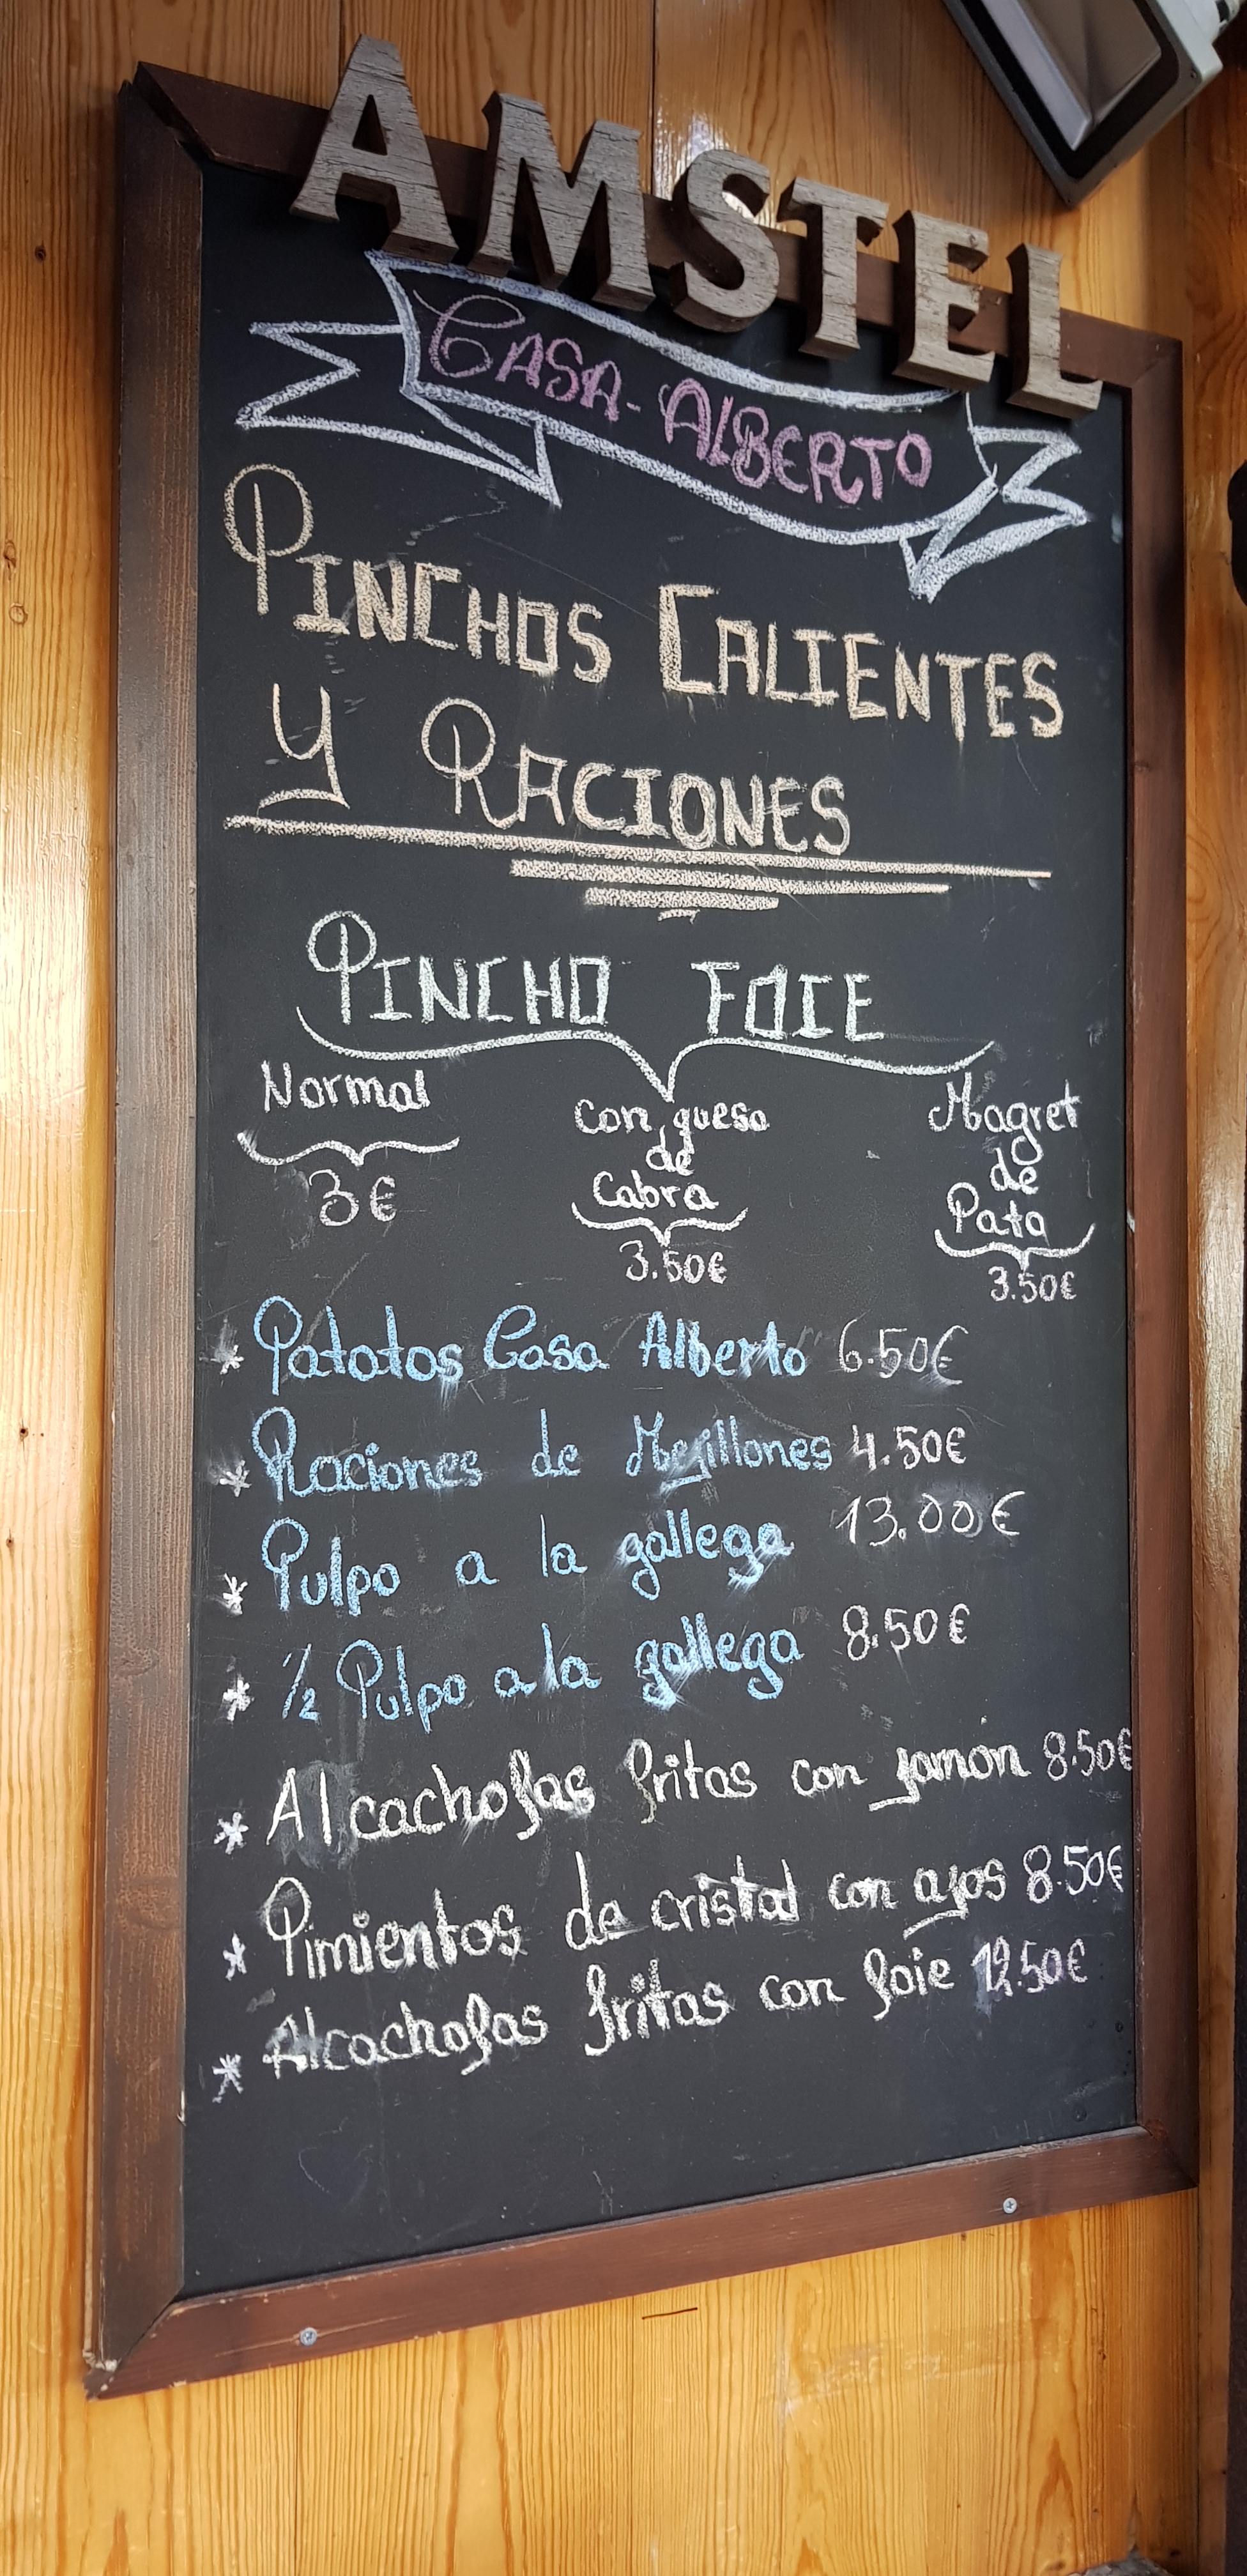 AMSTEL
CASA-ALBERTO
PINCHOS CALIENTES
Y RACIONES
PINCHO FOIE
Normal
3€
con queso
de
Cabra
3.50€
Magret
de
Pata
3.50€
* Patatas Casa Alberto 6.50€
* Raciones de Mejillones 4.50€
* Pulpo a la gallega 13.00€
* 1/2 Pulpo a la gallega 8.50€
* Alcachofas fritas con jamón 8.50€
* Pimientos de cristal con ajos 8.50€
* Alcachofas fritas con foie 12.50€